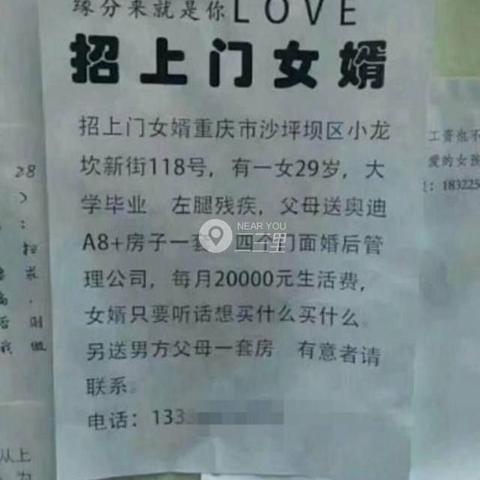 缘分来就是你LOVE
招上门女婿
招上门女婿重庆市沙坪坝区小龙
坎新街118号，有一女29岁，大
学毕业 左腿残疾，父母送奥迪
A8+房子一套 四个门面婚后管
理公司，每月20000元生活费，
女婿只要听话想买什么买什么
另送男方父母一套房 有意者请
联系。
电话：133
NEAR YOU
二三里
工资也不
爱的女孩
：183225
28
）
：
求
高．
否则
我做
从上
为